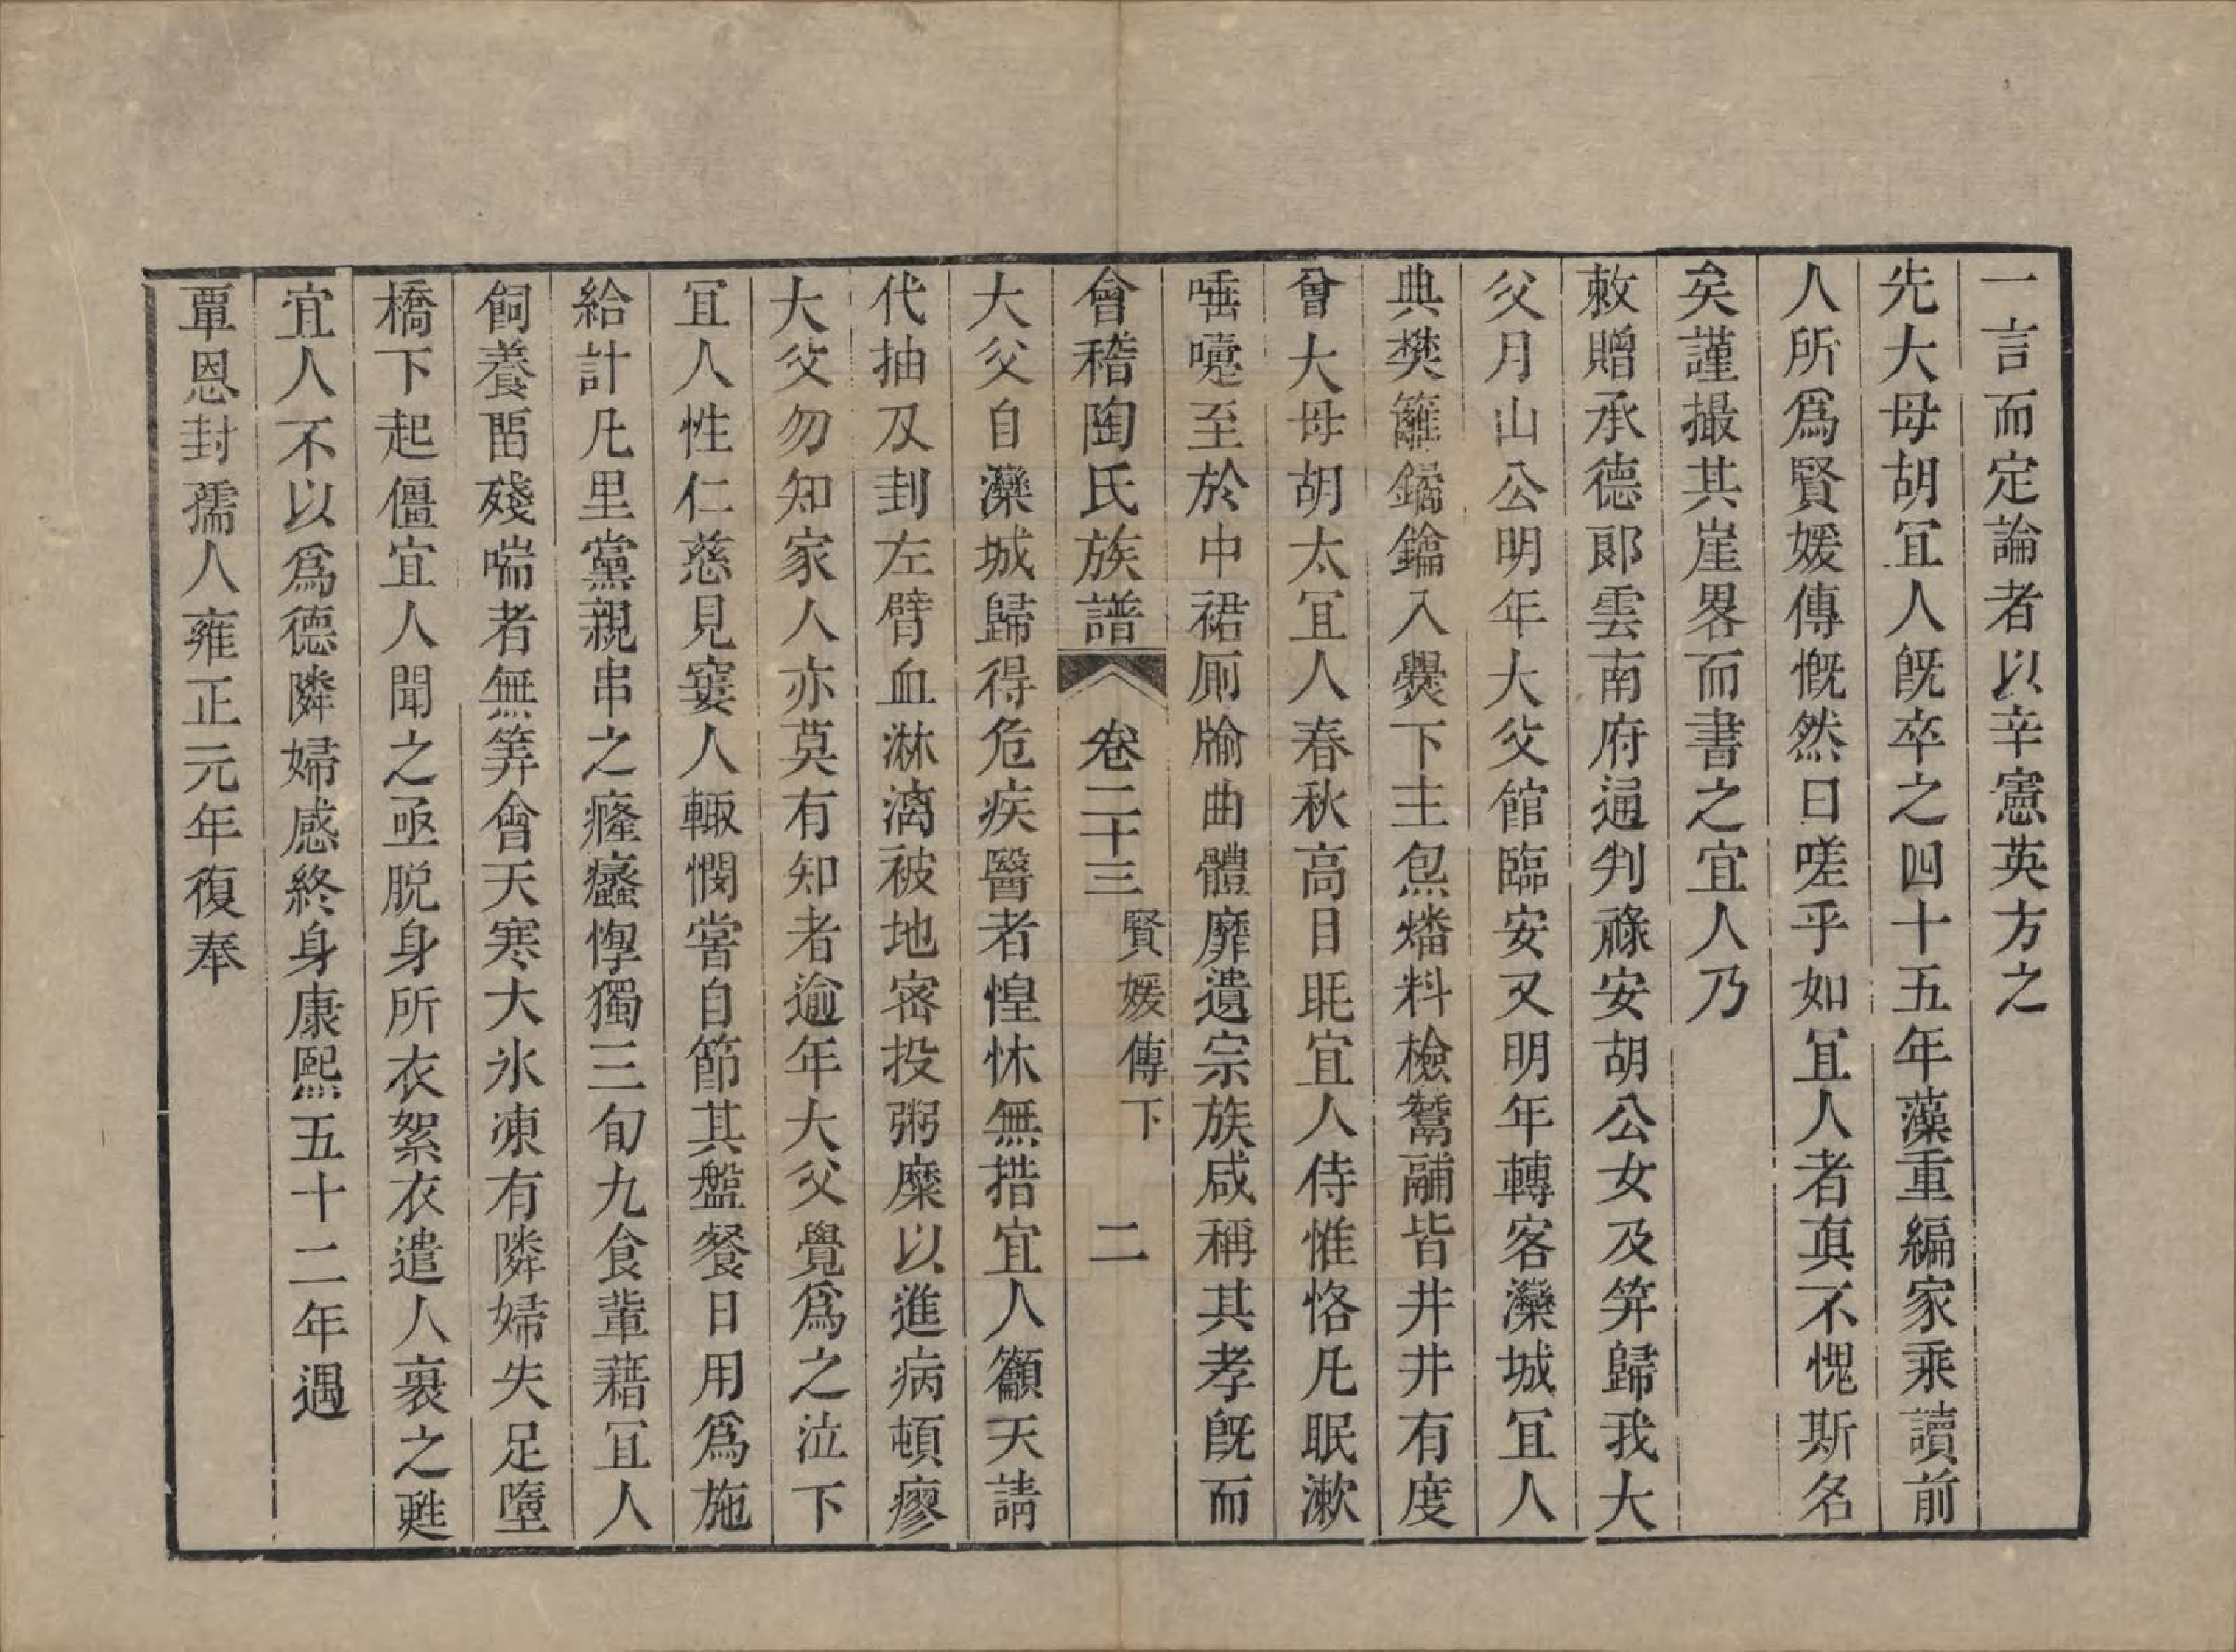 一言而定論者以辛憲英方之
先大母胡宜人旣卒之四十五年藻重編家乘讀前
人所爲賢媛傳慨然曰嗟乎如宜人者眞不愧斯名
矣謹撮其崖畧而書之宜人乃
敕贈承德郞雲南府通判祿安胡公女及筓歸我大
父月山公明年大父館臨安又明年轉客灤城宜人
典樊籬鐍鑰入爨下主炰燔料檢鬵䰞皆井井有度
曾大母胡太宜人春秋高目眊宜人侍惟恪凡眠漱
唾嚔至於中裙厠牏曲體靡遺宗族咸稱其孝旣而
會稽陶氏族譜
卷二十三
賢媛傳下
二
大父自灤城歸得危疾醫者惶怵無措宜人籲天請
代抽刄刲左臂血淋漓被地宻投粥糜以進病頓瘳
大父勿知家人亦莫有知者逾年大父覺爲之泣下
宜人性仁慈見窶人輙憫嘗自節其盤餐日用爲施
給計凡里黨親串之癃蠱惸獨三旬九食輩藉宜人
飼養畱殘喘者無筭會天寒大氷凍有隣婦失足墮
橋下起僵宜人聞之亟脫身所衣絮衣遣人裹之甦
宜人不以爲德隣婦感終身康熙五十二年遇
覃恩封孺人雍正元年復奉